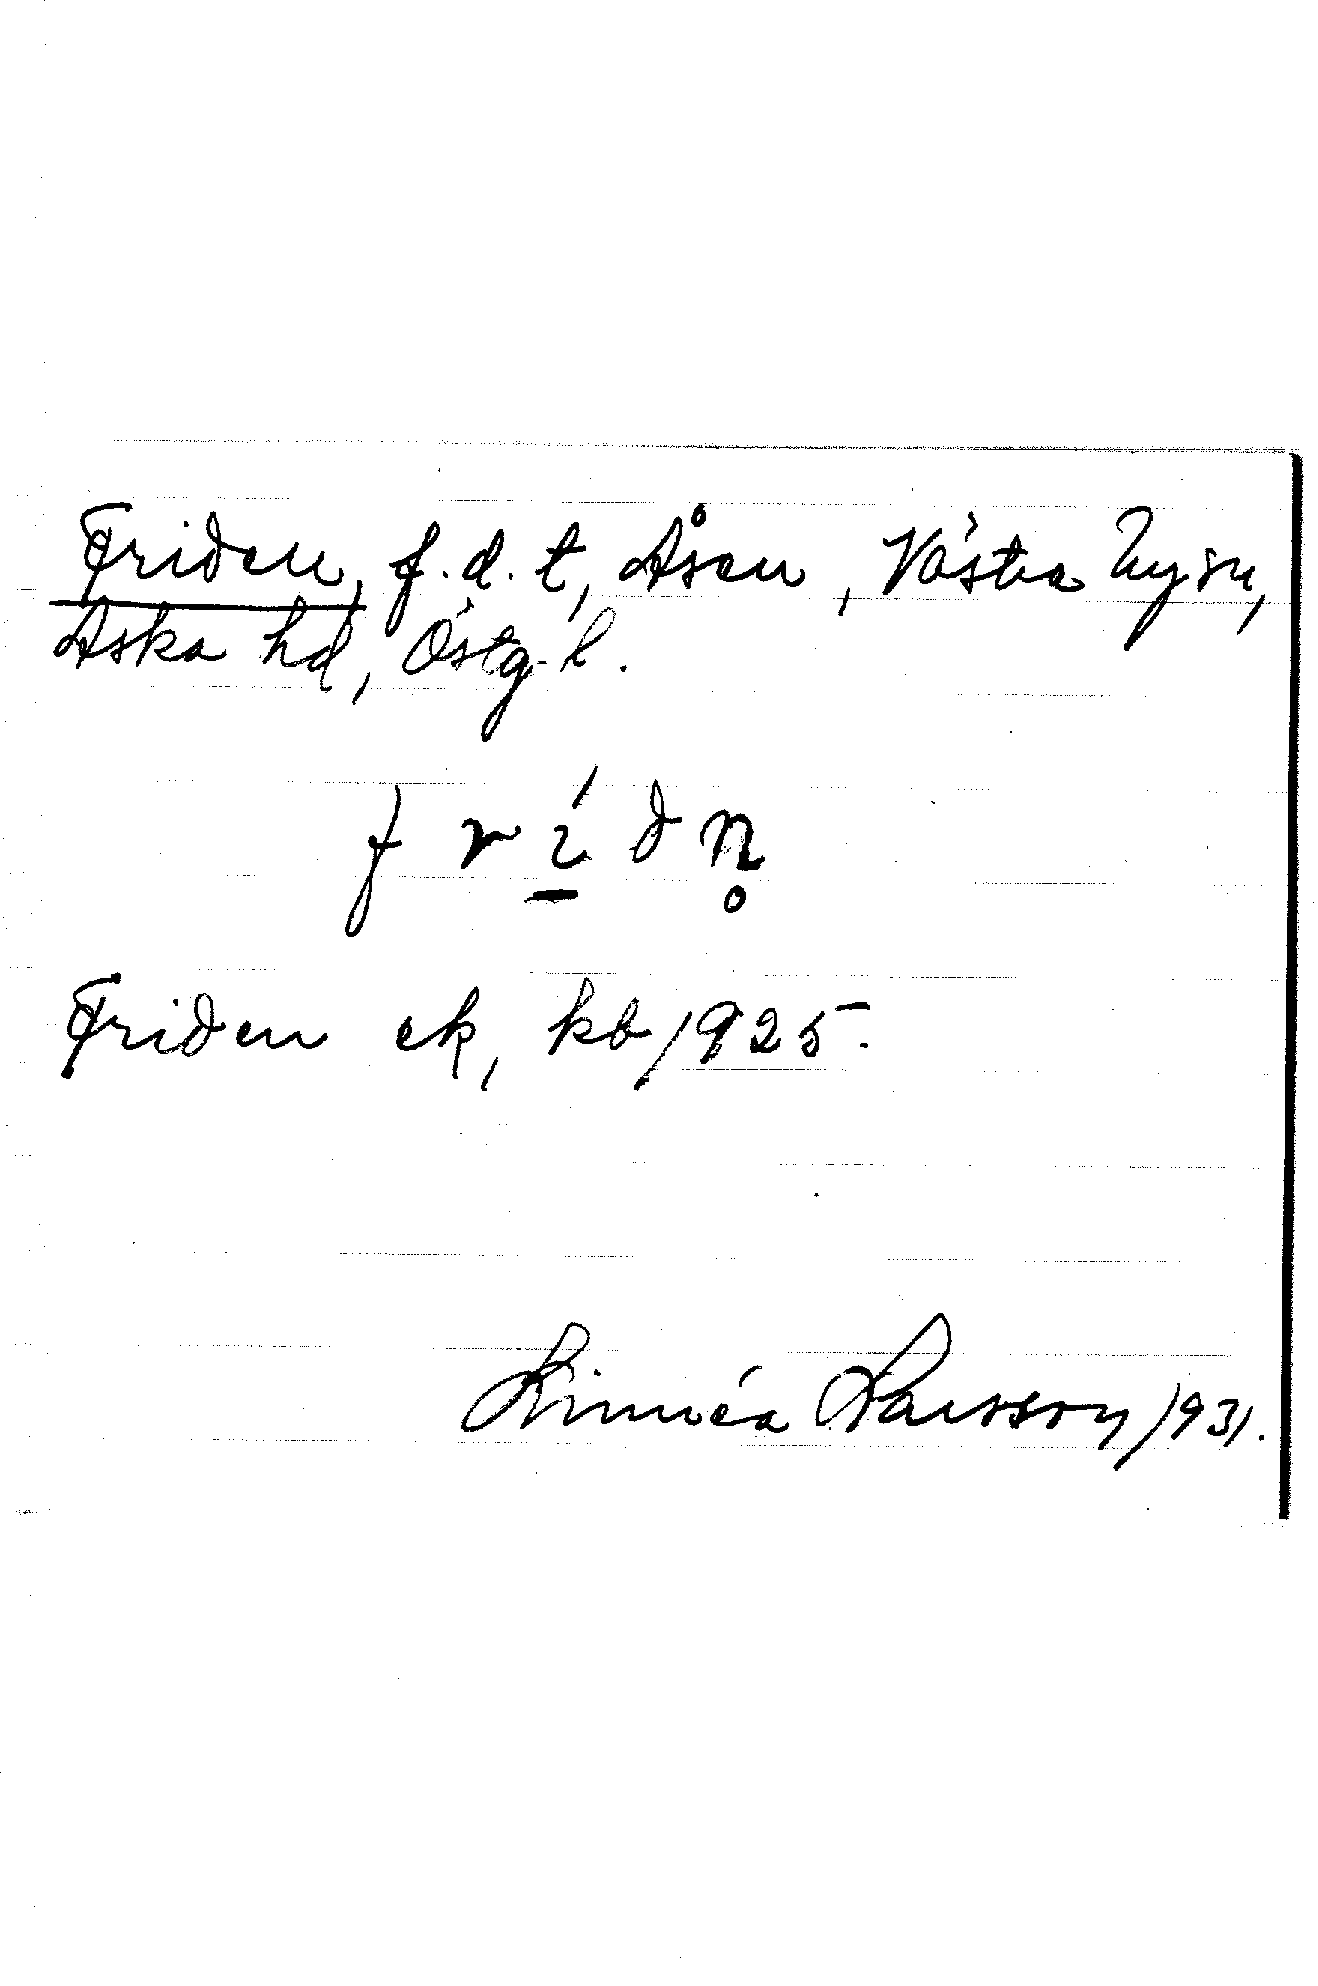 Friden, f.d. t, Åsen, Västra Ny sn,
Aska hd, Östg. l.
f r í̱ d n̥
Friden ek, kb 1925.
Linnéa Larsson 1931.